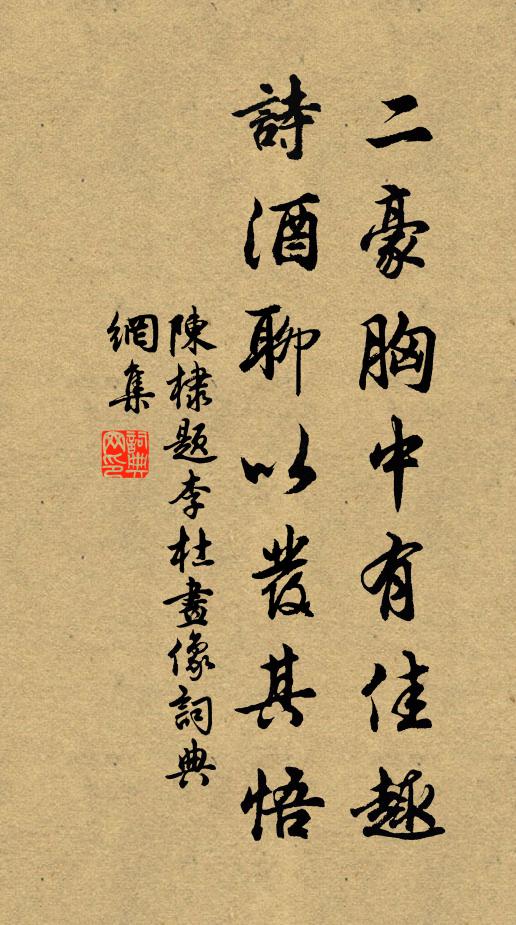 二豪胸中有佳趣
詩酒聊以發其悟
陳棣題李杜畫像詞典
網集
詞典
网印